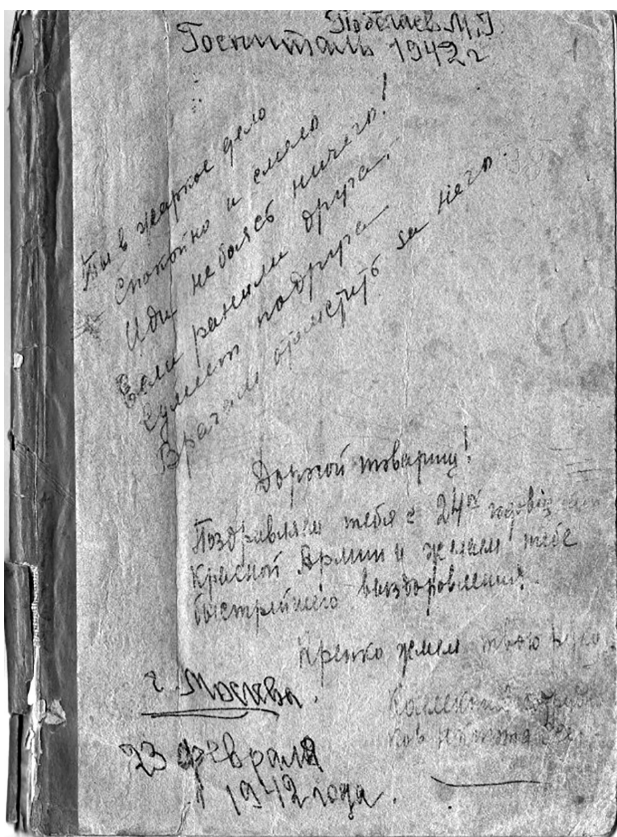 Побегаев М.Г
Госпиталь 1942 г
Ты в жаркое дело
Спокойно и смело
Иди не боясь ничего!
Если ранили друга,
Сумеет подруга
Врагам отмстить за него.
Дорогой товарищ!
Поздравляем тебя с 24ой
Красной Армии и желаем тебе
быстрейшего выздоровления!
Крепко жмем твою руку
г. Москва.
23 февраля
1942 года.